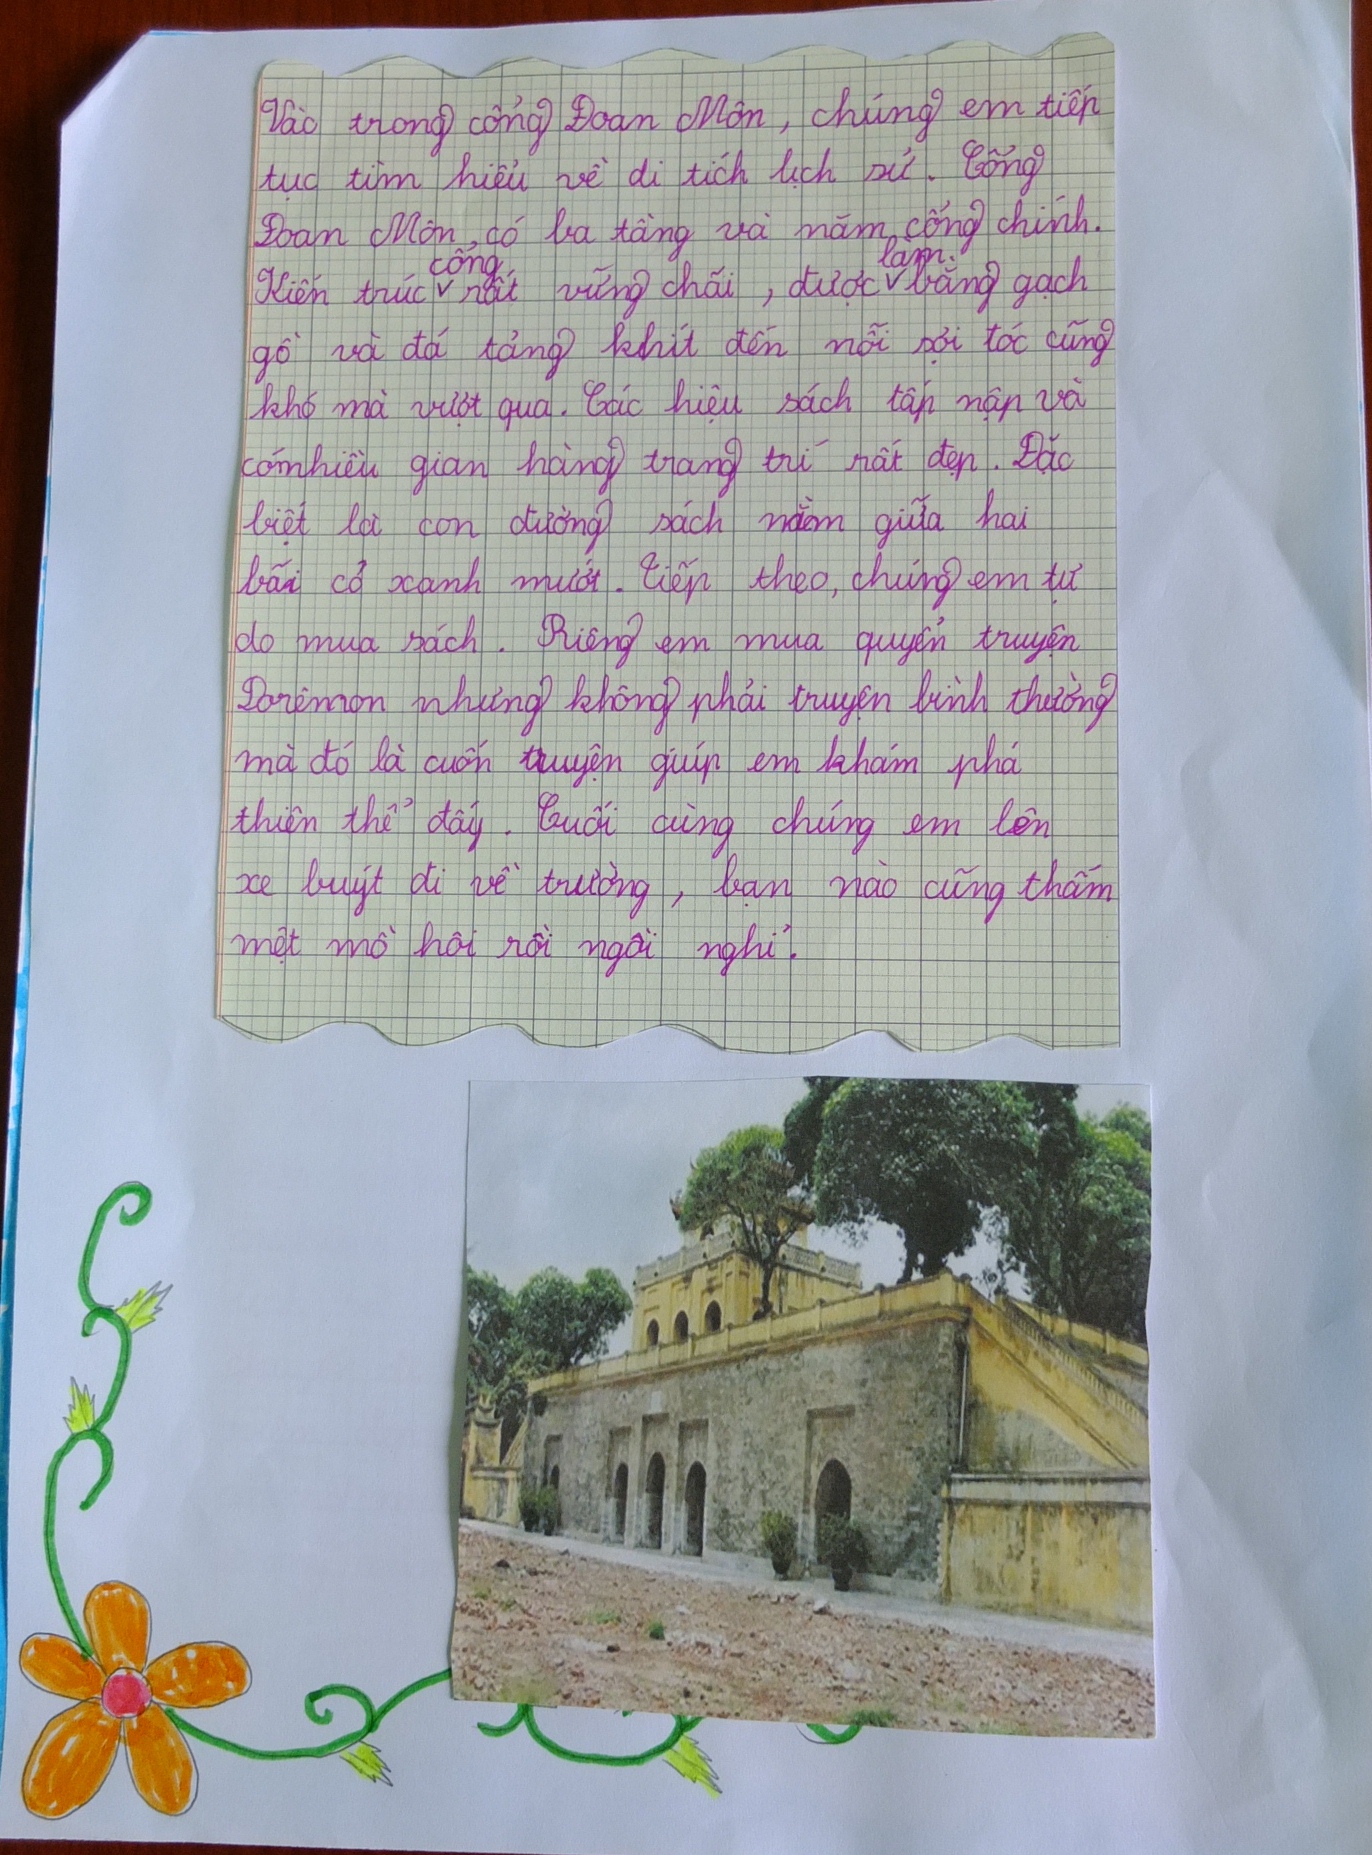 Vào trong cổng Đoan Môn, chúng em tiếp
tục tìm hiểu về di tích lịch sử. Cổng
Đoan Môn có ba tầng và năm cổng chính.
Kiến trúc cổng rất vững chãi, được làm bằng gạch
gồ và đá tảng khít đến nỗi sợi tóc cũng
khó mà vượt qua. Các hiệu sách tấp nập và
có nhiều gian hàng trang trí rất đẹp. Đặc
biệt là con đường sách nằm giữa hai
bãi cỏ xanh mướt. Tiếp theo, chúng em tự
do mua sách. Riêng em mua quyển truyện
Dorêmon nhưng không phải truyện bình thường
mà đó là cuốn truyện giúp em khám phá
thiên thể đấy. Cuối cùng chúng em lên
xe buýt đi về trường, bạn nào cũng thấm
mệt mồ hôi rồi ngồi nghỉ.